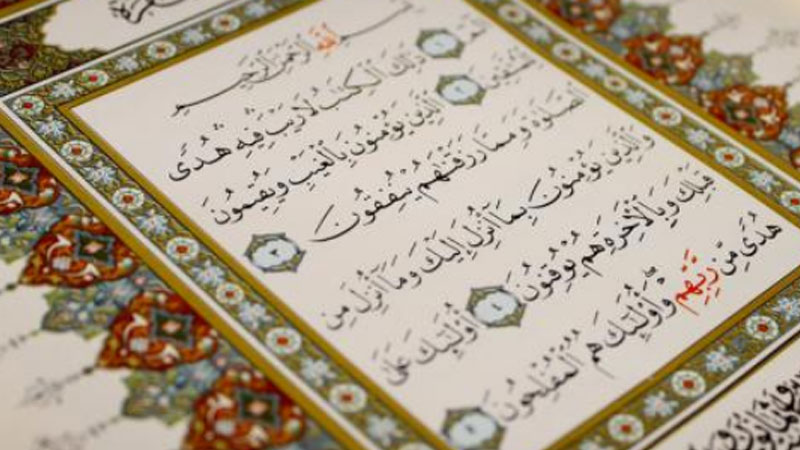 بِسْمِ اللَّهِ الرَّحْمٰنِ الرَّحِيمِ
الم ١ ذٰلِكَ الْكِتٰبُ لَا رَيْبَ فِيهِ هُدًى
لِلْمُتَّقِينَ ٢ الَّذِينَ يُؤْمِنُونَ بِالْغَيْبِ وَيُقِيمُونَ
الصَّلٰوةَ وَمِمَّا رَزَقْنٰهُمْ يُنْفِقُونَ ٣
وَالَّذِينَ يُؤْمِنُونَ بِمَا أُنْزِلَ إِلَيْكَ وَمَا أُنْزِلَ مِنْ
قَبْلِكَ وَبِالْاٰخِرَةِ هُمْ يُوقِنُونَ ٤ أُولٰئِكَ عَلَى
هُدًى مِنْ رَبِّهِمْ وَأُولٰئِكَ هُمُ الْمُفْلِحُونَ ٥